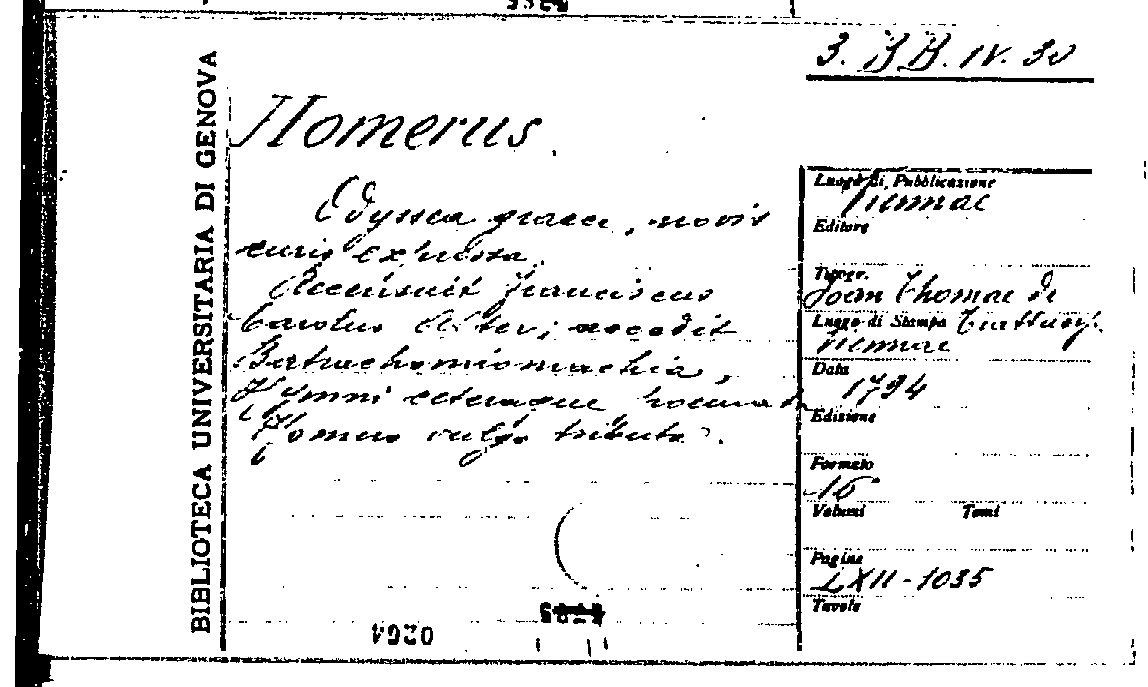 3. BB. IV. 30
BIBLIOTECA UNIVERSITARIA DI GENOVA
Homerus
Odyssea graece, novis
curis expressa.
Recensuit Franciscus
Carolus Alter; accedit
Batrachomiomachia,
Hymni ceteraque poemata
Homero vulgo tributa.
Luogo di Pubblicazione
Viennae
Editore
Tipogr.
Joan Thomae de
Luogo di Stampa
Viennae
Data
1794
Edizione
Formato
16°
Volumi Tomi
Pagine
LXII-1035
Tavole
0264